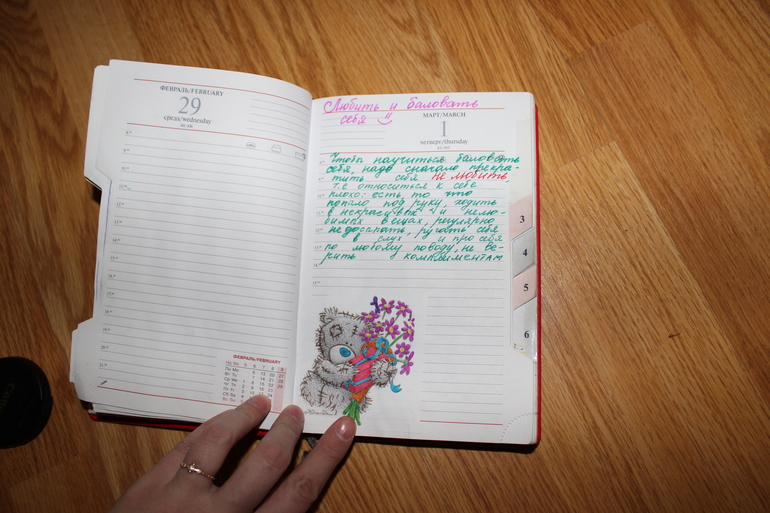 ФЕВРАЛЬ/FEBRUARY
29
среда/wednesday
ФЕВРАЛЬ/FEBRUARY
Любить и баловать
себя
МАРТ/MARCH
1
четверг/thursday
Чтобы научиться баловать
себя, надо сначала прекра-
тить себя не любить,
т.е относиться к себе
плохо: есть, то что
попало под руку, ходить
в некрасивых и нелю-
бимых вещах, регулярно
недосыпать, ругать себя
в слух и про себя
по любому поводу, не ве-
рить комплиментам
3
4
5
6